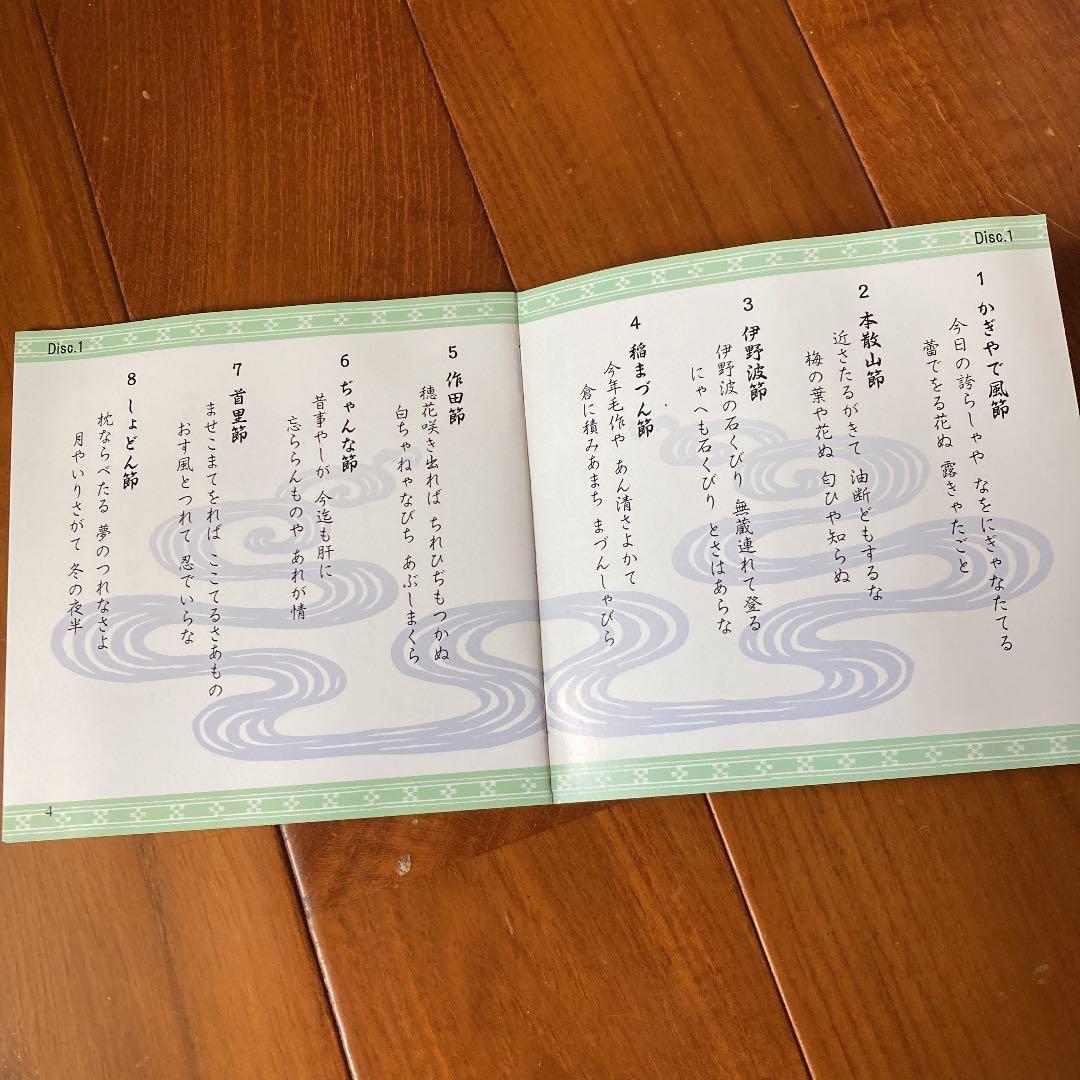 Disc.1
1 かぎやで風節
今日の誇らしゃや なをにぎゃなたてる
蕾でをる花ぬ 露きゃたごと
2 本散山節
近さたるがきて 油断どもするな
梅の葉や花ぬ 匂ひや知らぬ
3 伊野波節
伊野波の石くびり 無蔵連れて登る
にゃへも石くびり とさはあらな
4 稲まづん節
今年毛作や あん清さよかて
倉に積みあまち まづんしゃびら
Disc.1
5 作田節
穂花咲き出れば ちれひぢもつかぬ
白ちゃねゃなびち あぶしまくら
6 ぢゃんな節
昔事やしが 今迄も肝に
忘ららんものや あれが情
7 首里節
ませこまてをれば ここてるさあもの
おす風とつれて 忍でいらな
8 しょどん節
枕ならべたる 夢のつれなさよ
月やいりさがて 冬の夜半
4